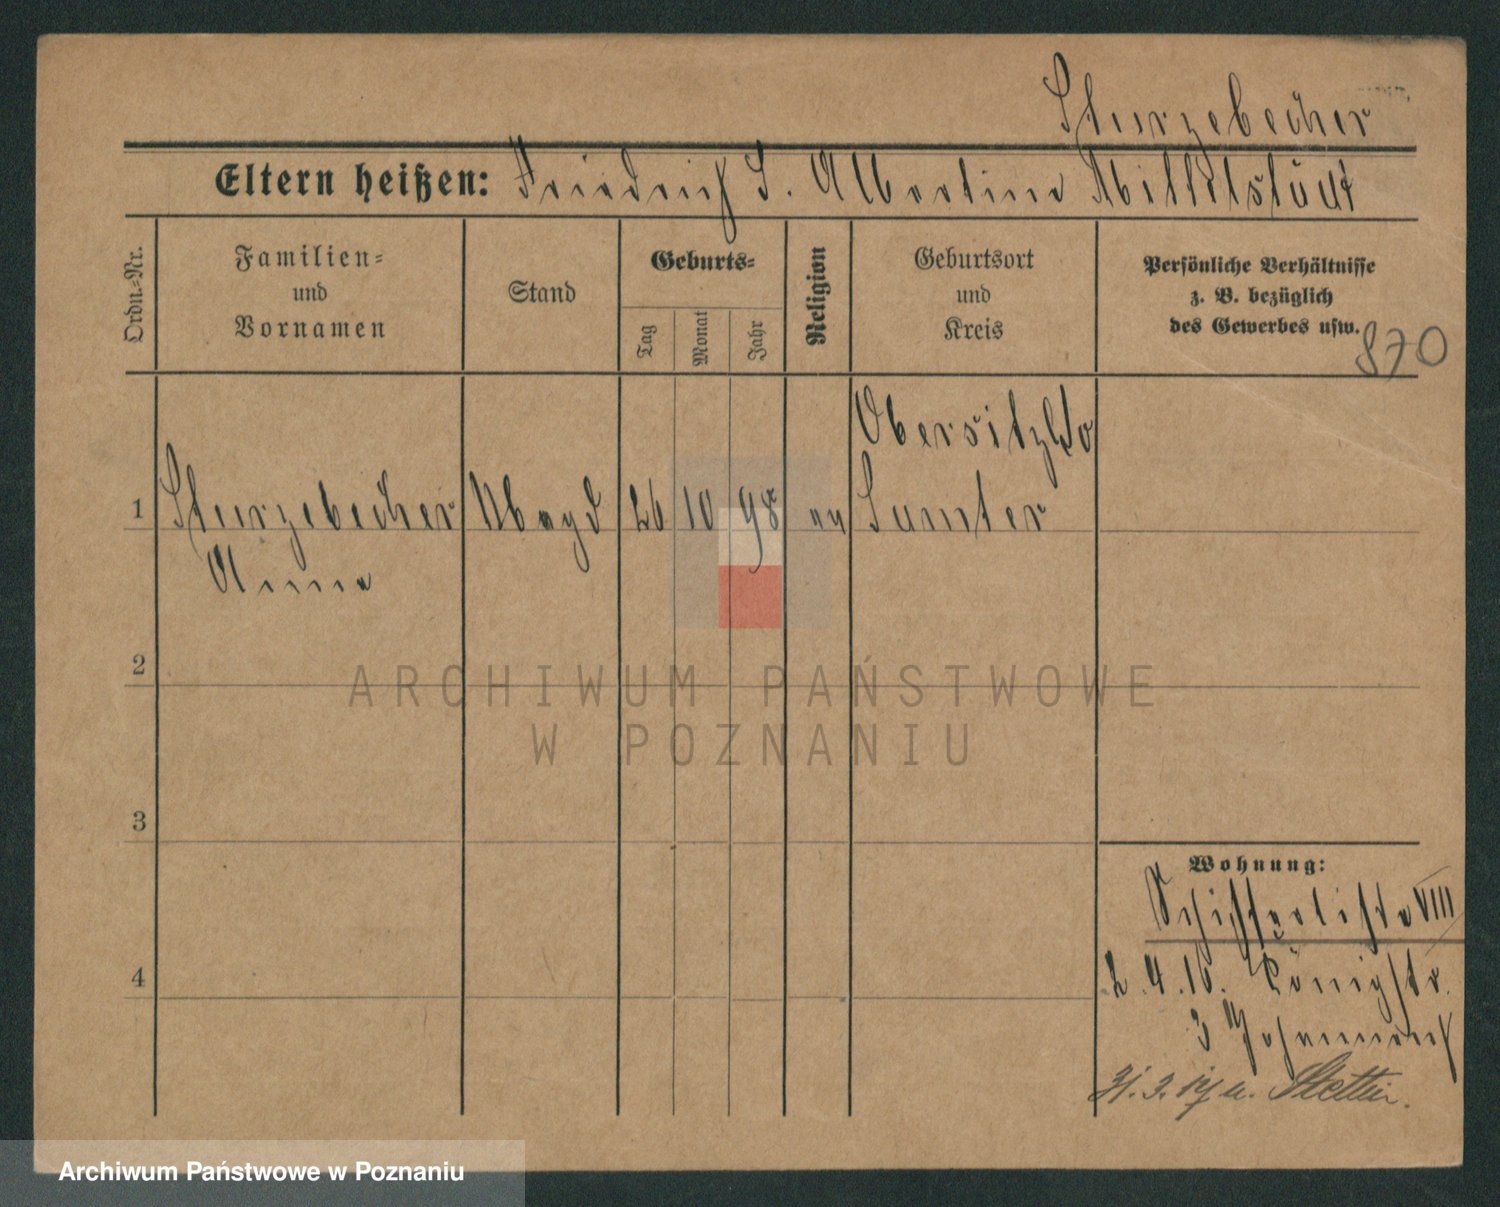 Sturzebecher
Eltern heißen: Friedrich S. Albertine Mittelstädt
Ordn.-Nr.
Familien-
und
Vornamen
Stand
Geburts-
Tag
Monat
Jahr
Religion
Geburtsort
und
Kreis
Persönliche Verhältnisse
z. B. bezüglich
des Gewerbes usw.
870
Obersitzko
1 Sturzebecher Magd 26 10 98 ev Samter
Anna
2
3
4
Wohnung:
Schifferliste VIII
2.4.16. Königstr.
3
31.3.17 n. Stettin.
ARCHIWUM PAŃSTWOWE
W POZNANIU
Archiwum Państwowe w Poznaniu